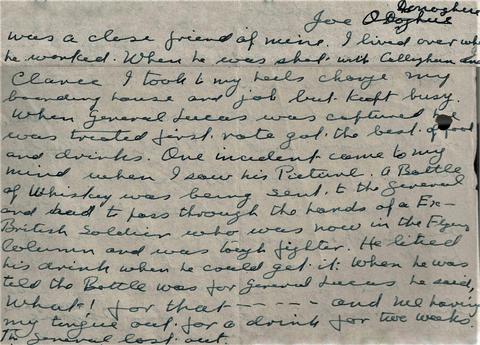 Donoghue
Joe O Doghue
was a close friend of mine. I lived over where
he worked. When he was shot with Callaghan and
Clance I took to my heels change my
boarding house and job but kept busy.
When General Lucas was captured he
was treated first rate got the best of food
and drinks. One incident came to my
mind when I saw his Picture. A Bottle
of Whiskey was being sent to the General
and had to pass through the hands of a Ex-
British Soldier who was now in the Flying
Column and was tough fighter. He liked
his drink when he could get it. When he was
told the Bottle was for General Lucas he said,
What! for that ----- and me having
my tongue out for a drink for two weeks.
The General lost out.